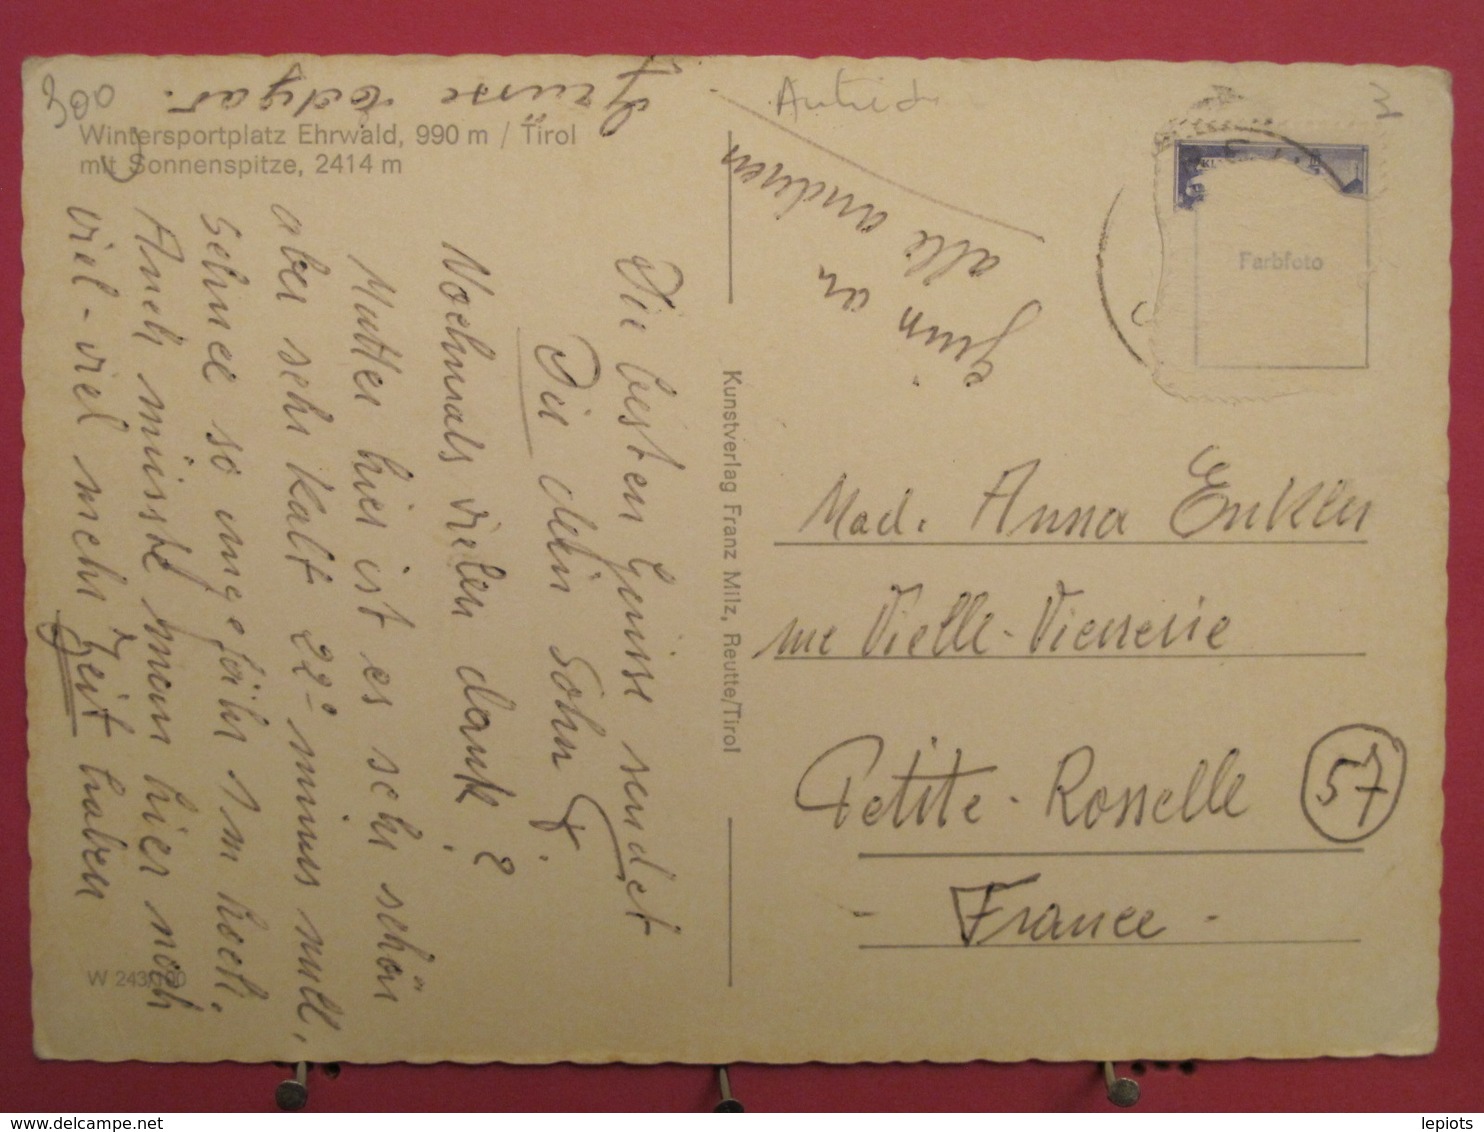 300
Wintersportplatz Ehrwald, 990 m / Tirol
mit Sonnenspitze, 2414 m
Die besten Grüsse sendet
Dir dein Sohn
Nochmals vielen dank!
Mutter hier ist es sehr schön
aber sehr kalt 22° minus null,
schnee so ungefähr 1 m hoch.
Auch müsste man hier noch
viel-viel mehr Zeit haben
Grüsse
alle anderen
Kunstverlag Franz Milz, Reutte/Tirol
Farbfoto
Mad. Anna Enkler
rue Vielle-Vierrerie
Petite-Rosselle 57
- France -
W 243
www.delcampe.net
lepiots